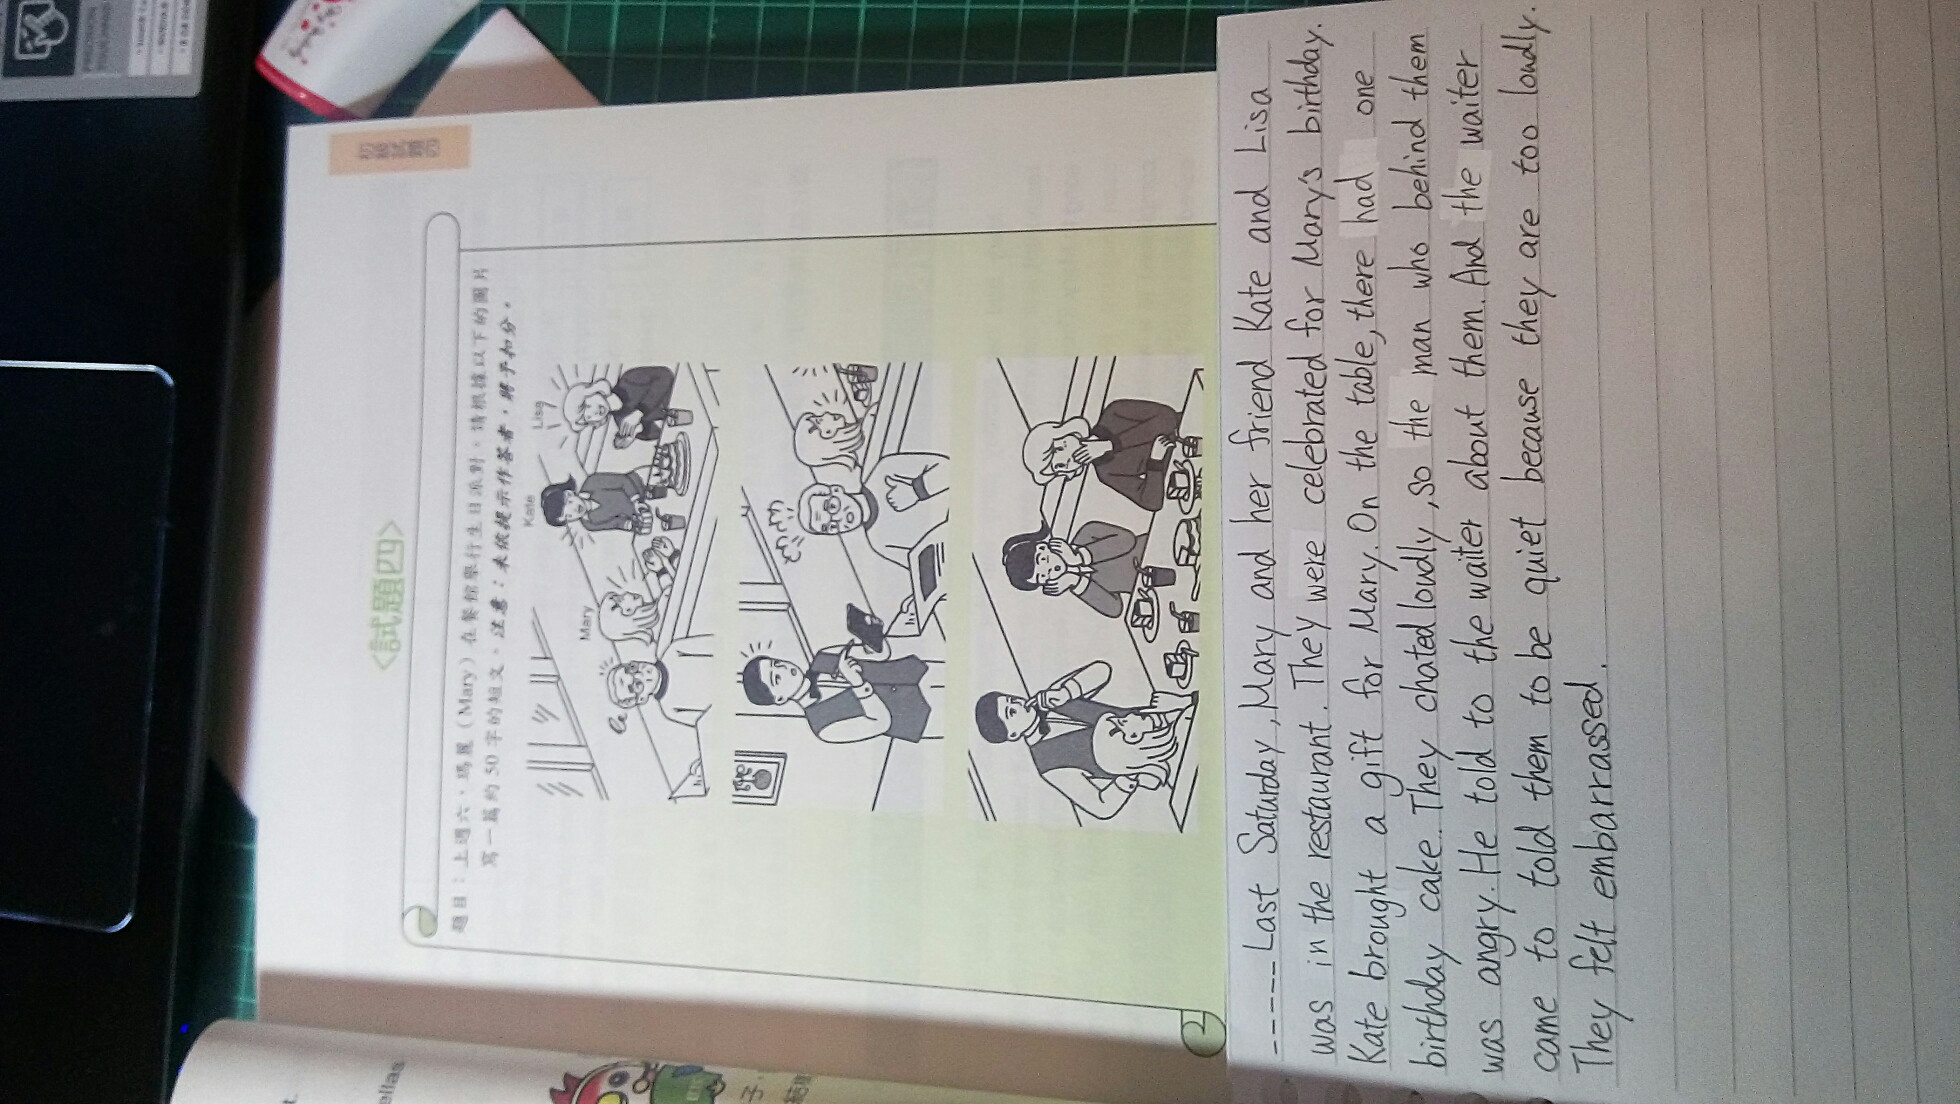 初級試題四
<試題四>
題目：上週六，瑪麗（Mary）在餐館舉行生日派對。請根據以下的圖片
寫一篇約 50 字的短文。注意：未依提示作答者，將予扣分。
Mary
Kate
Lisa
2
t.
ellas.
子，
-----Last Saturday, Mary and her friend Kate and Lisa
was in the restaurant. They were celebrated for Mary's birthday.
Kate brought a gift for Mary. On the table, there had one
birthday cake. They chated loudly, so the man who behind them
was angry. He told to the waiter about them. And the waiter
came to told them to be quiet because they are too loudly.
They felt embarrassed.